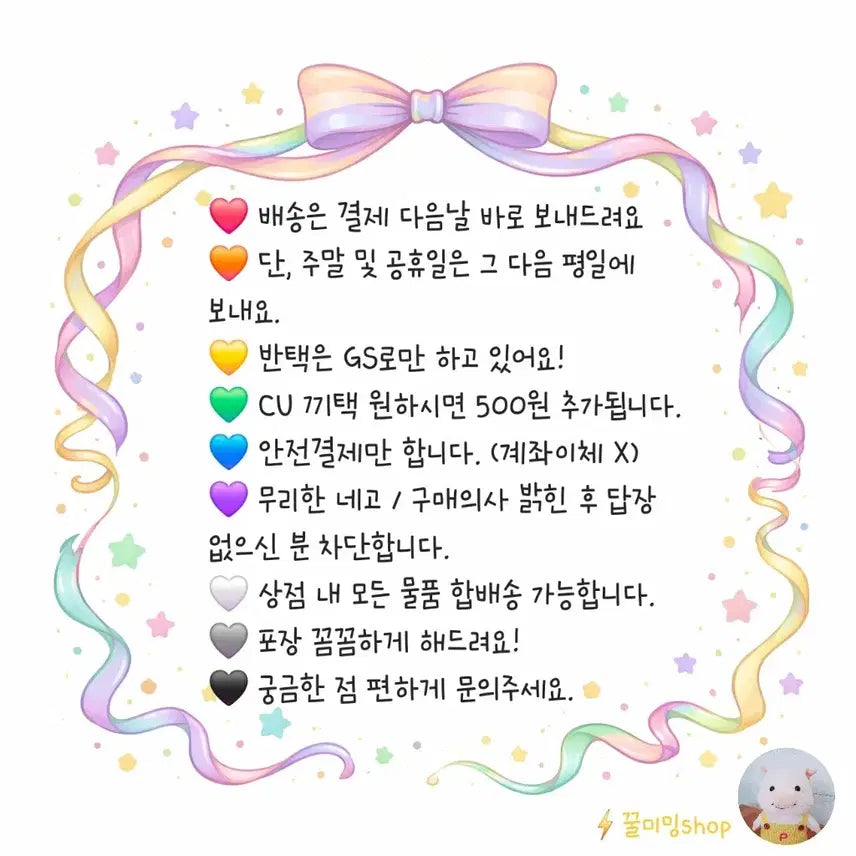 ❤️ 배송은 결제 다음날 바로 보내드려요
🧡 단, 주말 및 공휴일은 그 다음 평일에
보내요.
💛 반택은 GS로만 하고 있어요!
💚 CU 끼택 원하시면 500원 추가됩니다.
💙 안전결제만 합니다. (계좌이체 X)
💜 무리한 네고 / 구매의사 밝힌 후 답장
없으신 분 차단합니다.
🤍 상점 내 모든 물품 합배송 가능합니다.
🩶 포장 꼼꼼하게 해드려요!
🖤 궁금한 점 편하게 문의주세요.
⚡ 꿀미밍shop
P